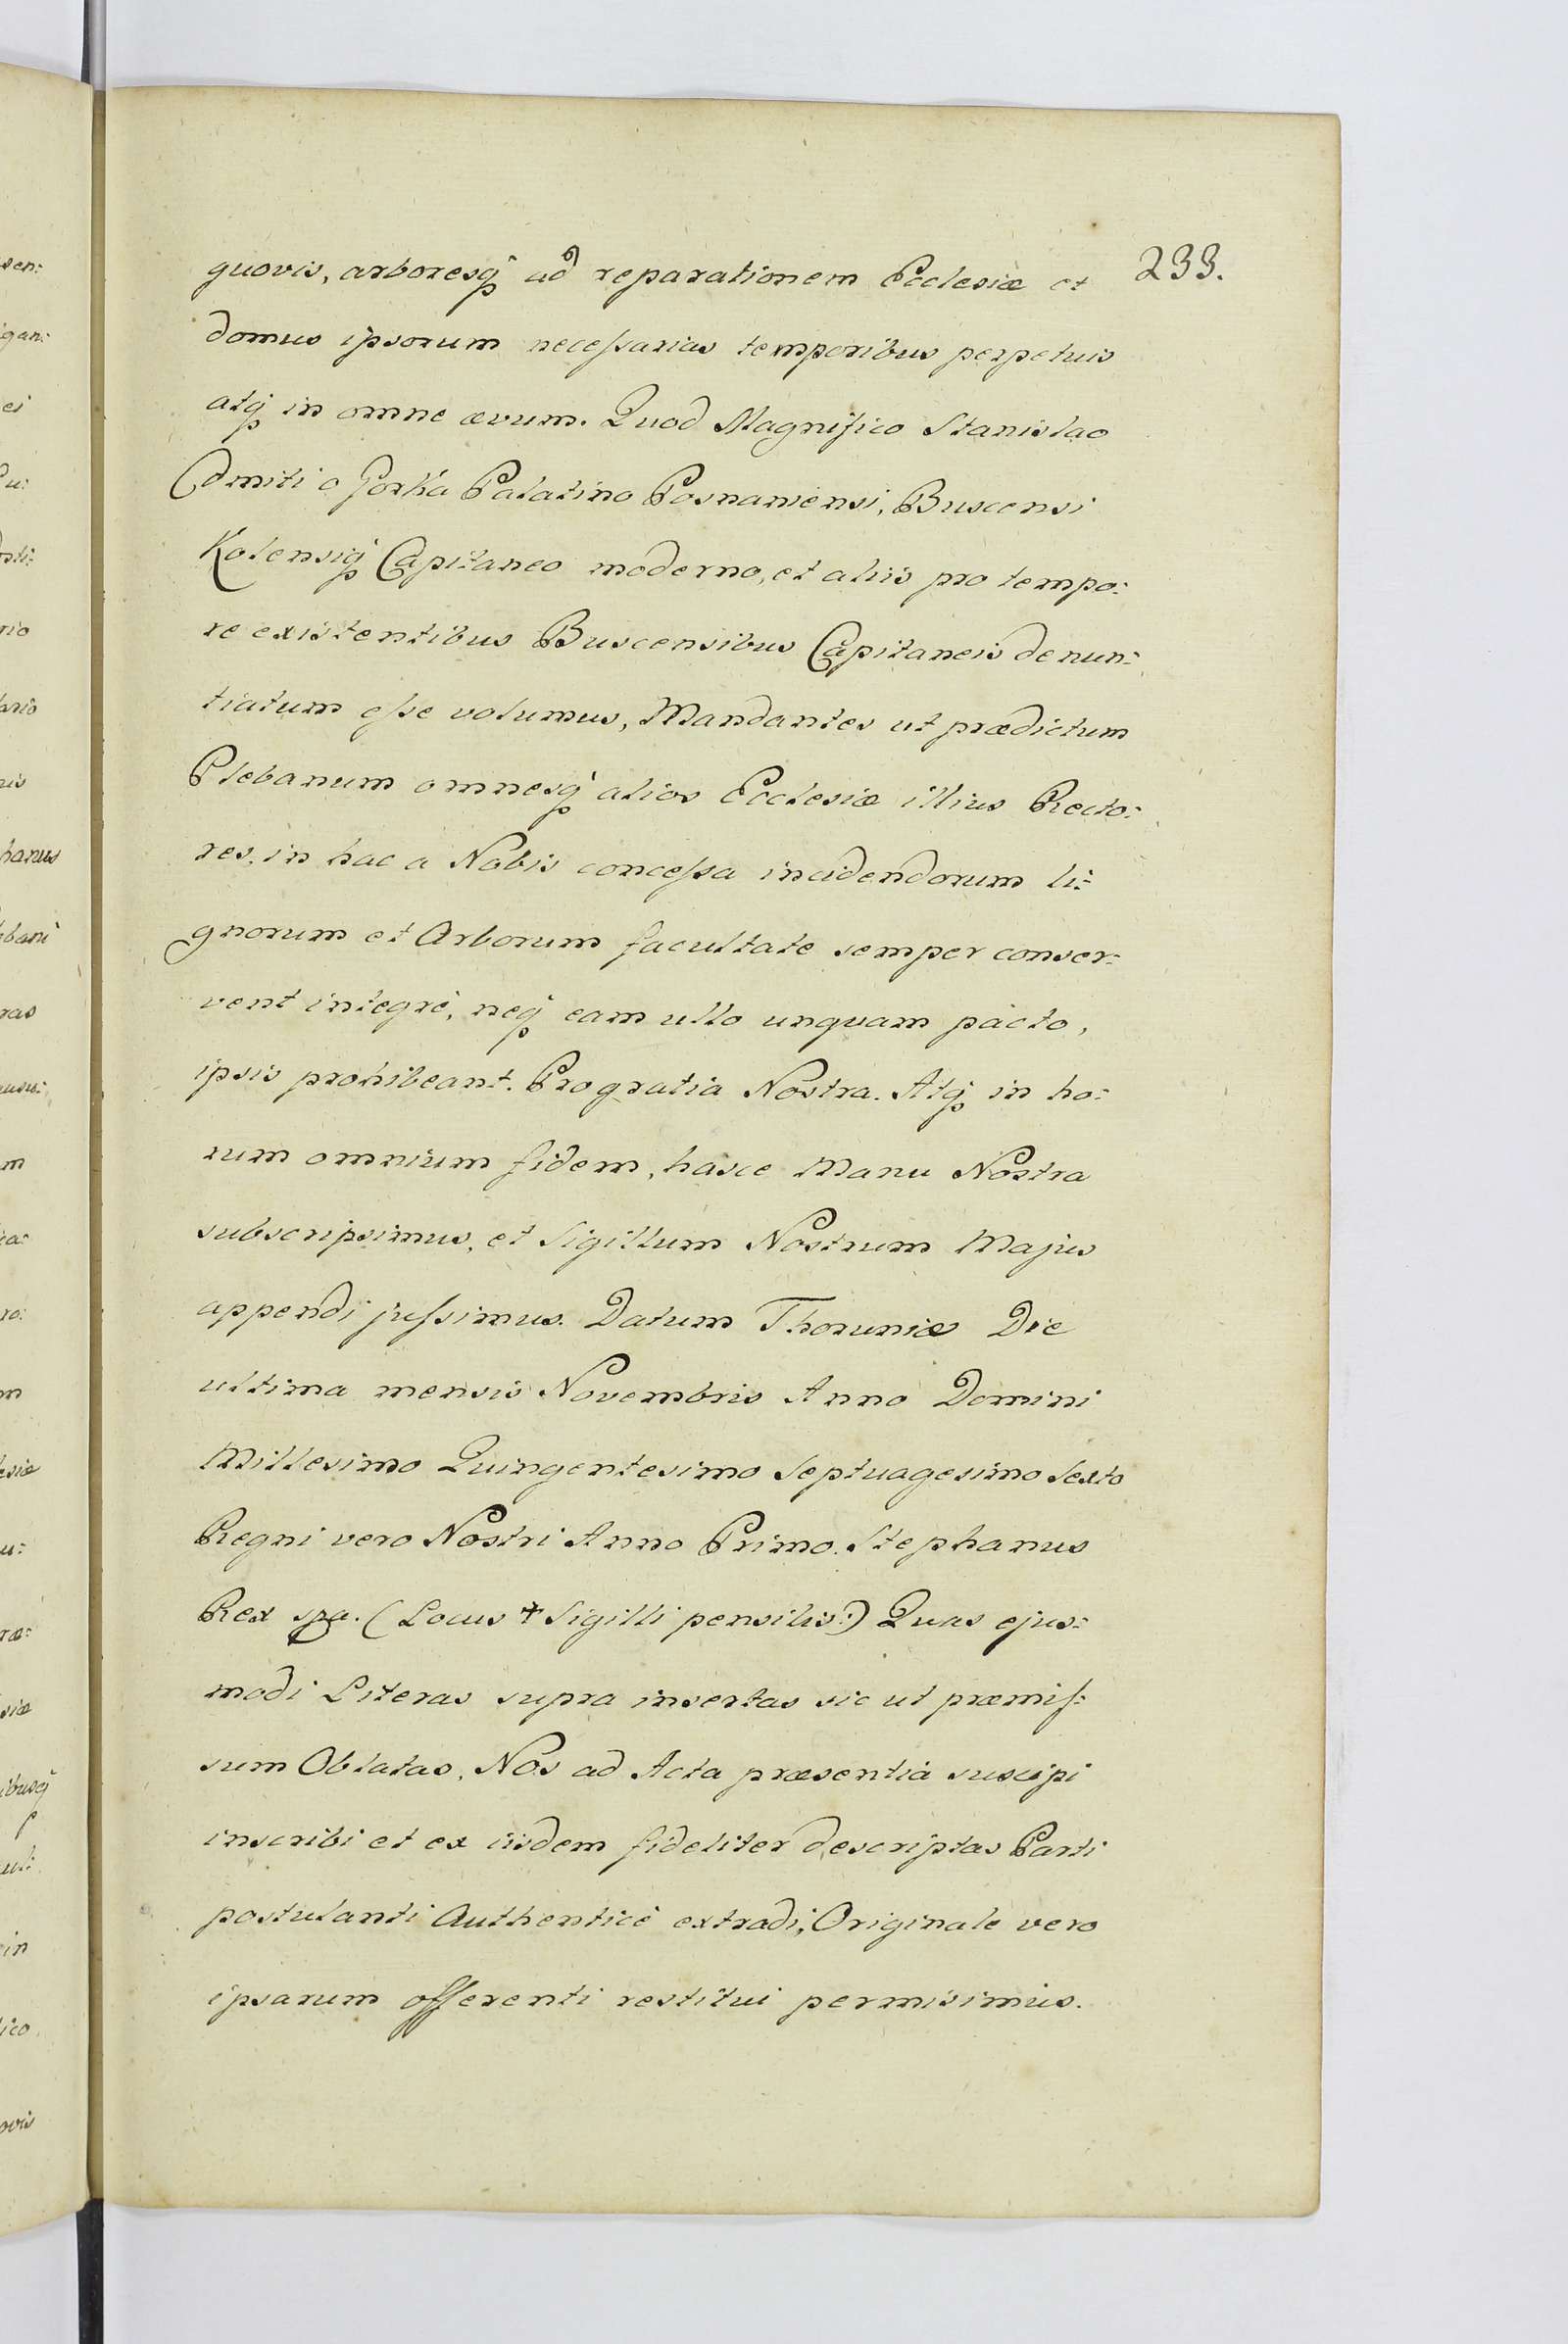 quovis, arboresq̃ ad reparationem Ecclesiæ et 233.
domus ipsorum necessarias temporibus perpetuis
atq̃ in omne ævum. Quod Magnifico Stanislao
Comiti a Gorka Palatino Posnaniensi, Buscensi
Kolensiq̃ Capitaneo moderno, et aliis pro tempo:
re existentibus Buscensibus Capitaneis denun:
tiatum esse volumus, Mandantes ut prædictum
Plebanum omnesq̃ alios Ecclesiæ illius Recto:
res, in hac a Nobis concessa incidendorum li:
gnorum et Arborum facultate semper conser:
vent integrè, neq̃ eam ullo unquam pacto,
ipsis prohibeant. Pro gratia Nostra. Atq̃ in ho:
rum omnium fidem, hasce Manu Nostra
subscripsimus, et Sigillum Nostrum Majus
appendi jussimus. Datum Thoruniæ Die
ultima mensis Novembris Anno Domini
Millesimo Quingentesimo Septuagesimo Sexto
Regni vero Nostri Anno Primo. Stephanus
Rex (Locus + Sigilli pensilis:) Quas ejus:
modi Literas supra insertas sic ut præmis:
sum Oblatas, Nos ad Acta præsentia suscipi
inscribi et ex iisdem fideliter descriptas Parti
postulanti Authenticè extradi, Originale vero
ipsarum offerenti restitui permisimus.